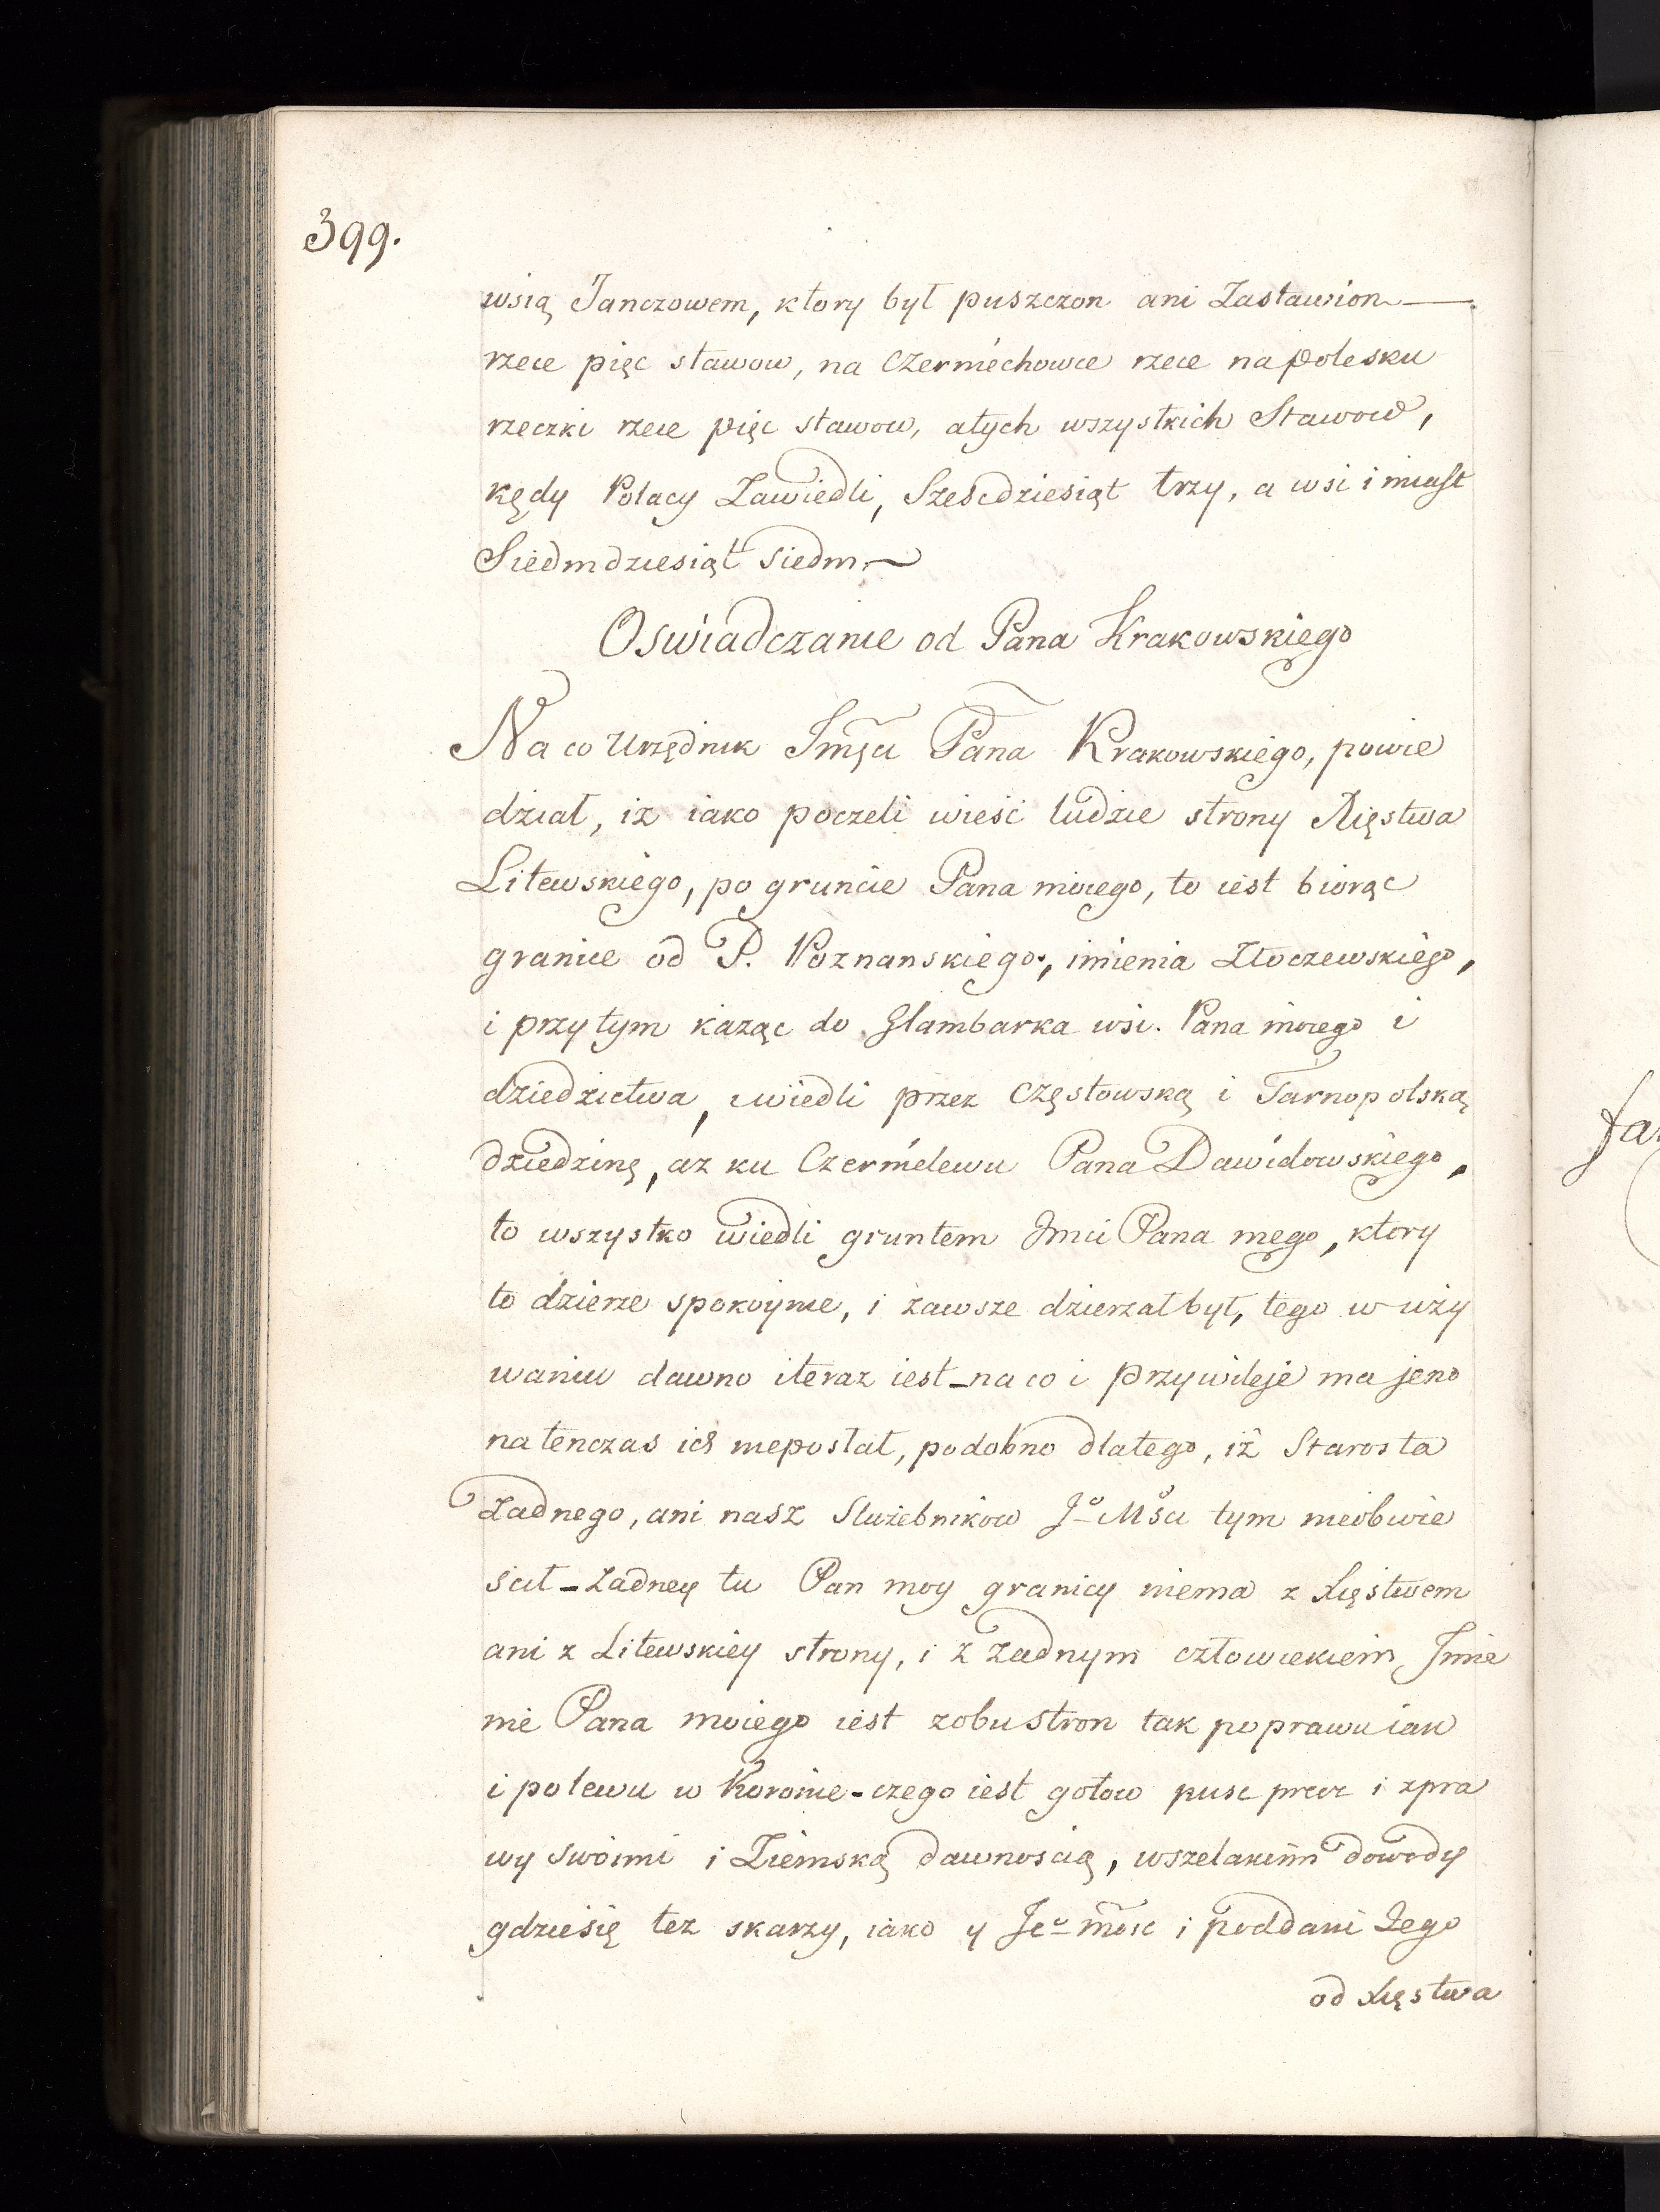 399.
wsią Janczowem, ktory był puszczon ani Zastawion —
rzece pięc stawow, na Czermechowce rzece na polesku
rzeczki rzece pięc stawow, atych wszystkich Stawow,
kędy Polacy Zawiedli, Szescdziesiąt trzy, a wsi i miast
Siedmdziesiąt siedm.~
Oswiadczanie od Pana Krakowskiego
Na co Urzędnik Pana Krakowskiego, powie
dział, iz iako poczeli wieść ludzie strony Xięstwa
Litewskiego, po gruncie Pana moiego, to iest biorąc
granice od P. Poznanskiego, imienia Złoczewskiego,
i przytym każąc do Glambarka wsi. Pana moiego i
dziedzictwa, wiedli przez Częstowską i Tarnopolską
dziedzinę, az ku Czermelewu Pana Dawidowskiego,
to wszystko wiedli gruntem Jmci Pana mego, ktory
to dzierze spokoynie, i zawsze dzierzał był, tego w uży
waniu dawno iteraz iest_na co i przywileje ma jeno
natenczas ich nieposłał, podobno dlatego, iż Starosta
Zadnego, ani nasz Służebnikow Jo Mści tym nieobwie
scił_Zadney tu Pan moy granicy niema z Xięstwem
ani z Litewskiey strony, i z Zadnym człowiekiem, Jmie
nie Pana moiego iest zobustron tak poprawu iak
i polewu w Koronie-czego iest gotow i zpra
wy swoimi i Ziemską dawnoscią, wszelakiim dowody
gdziesię tez skarzy, iako y Jeo mosc i poddani Jego
od Xięstwa